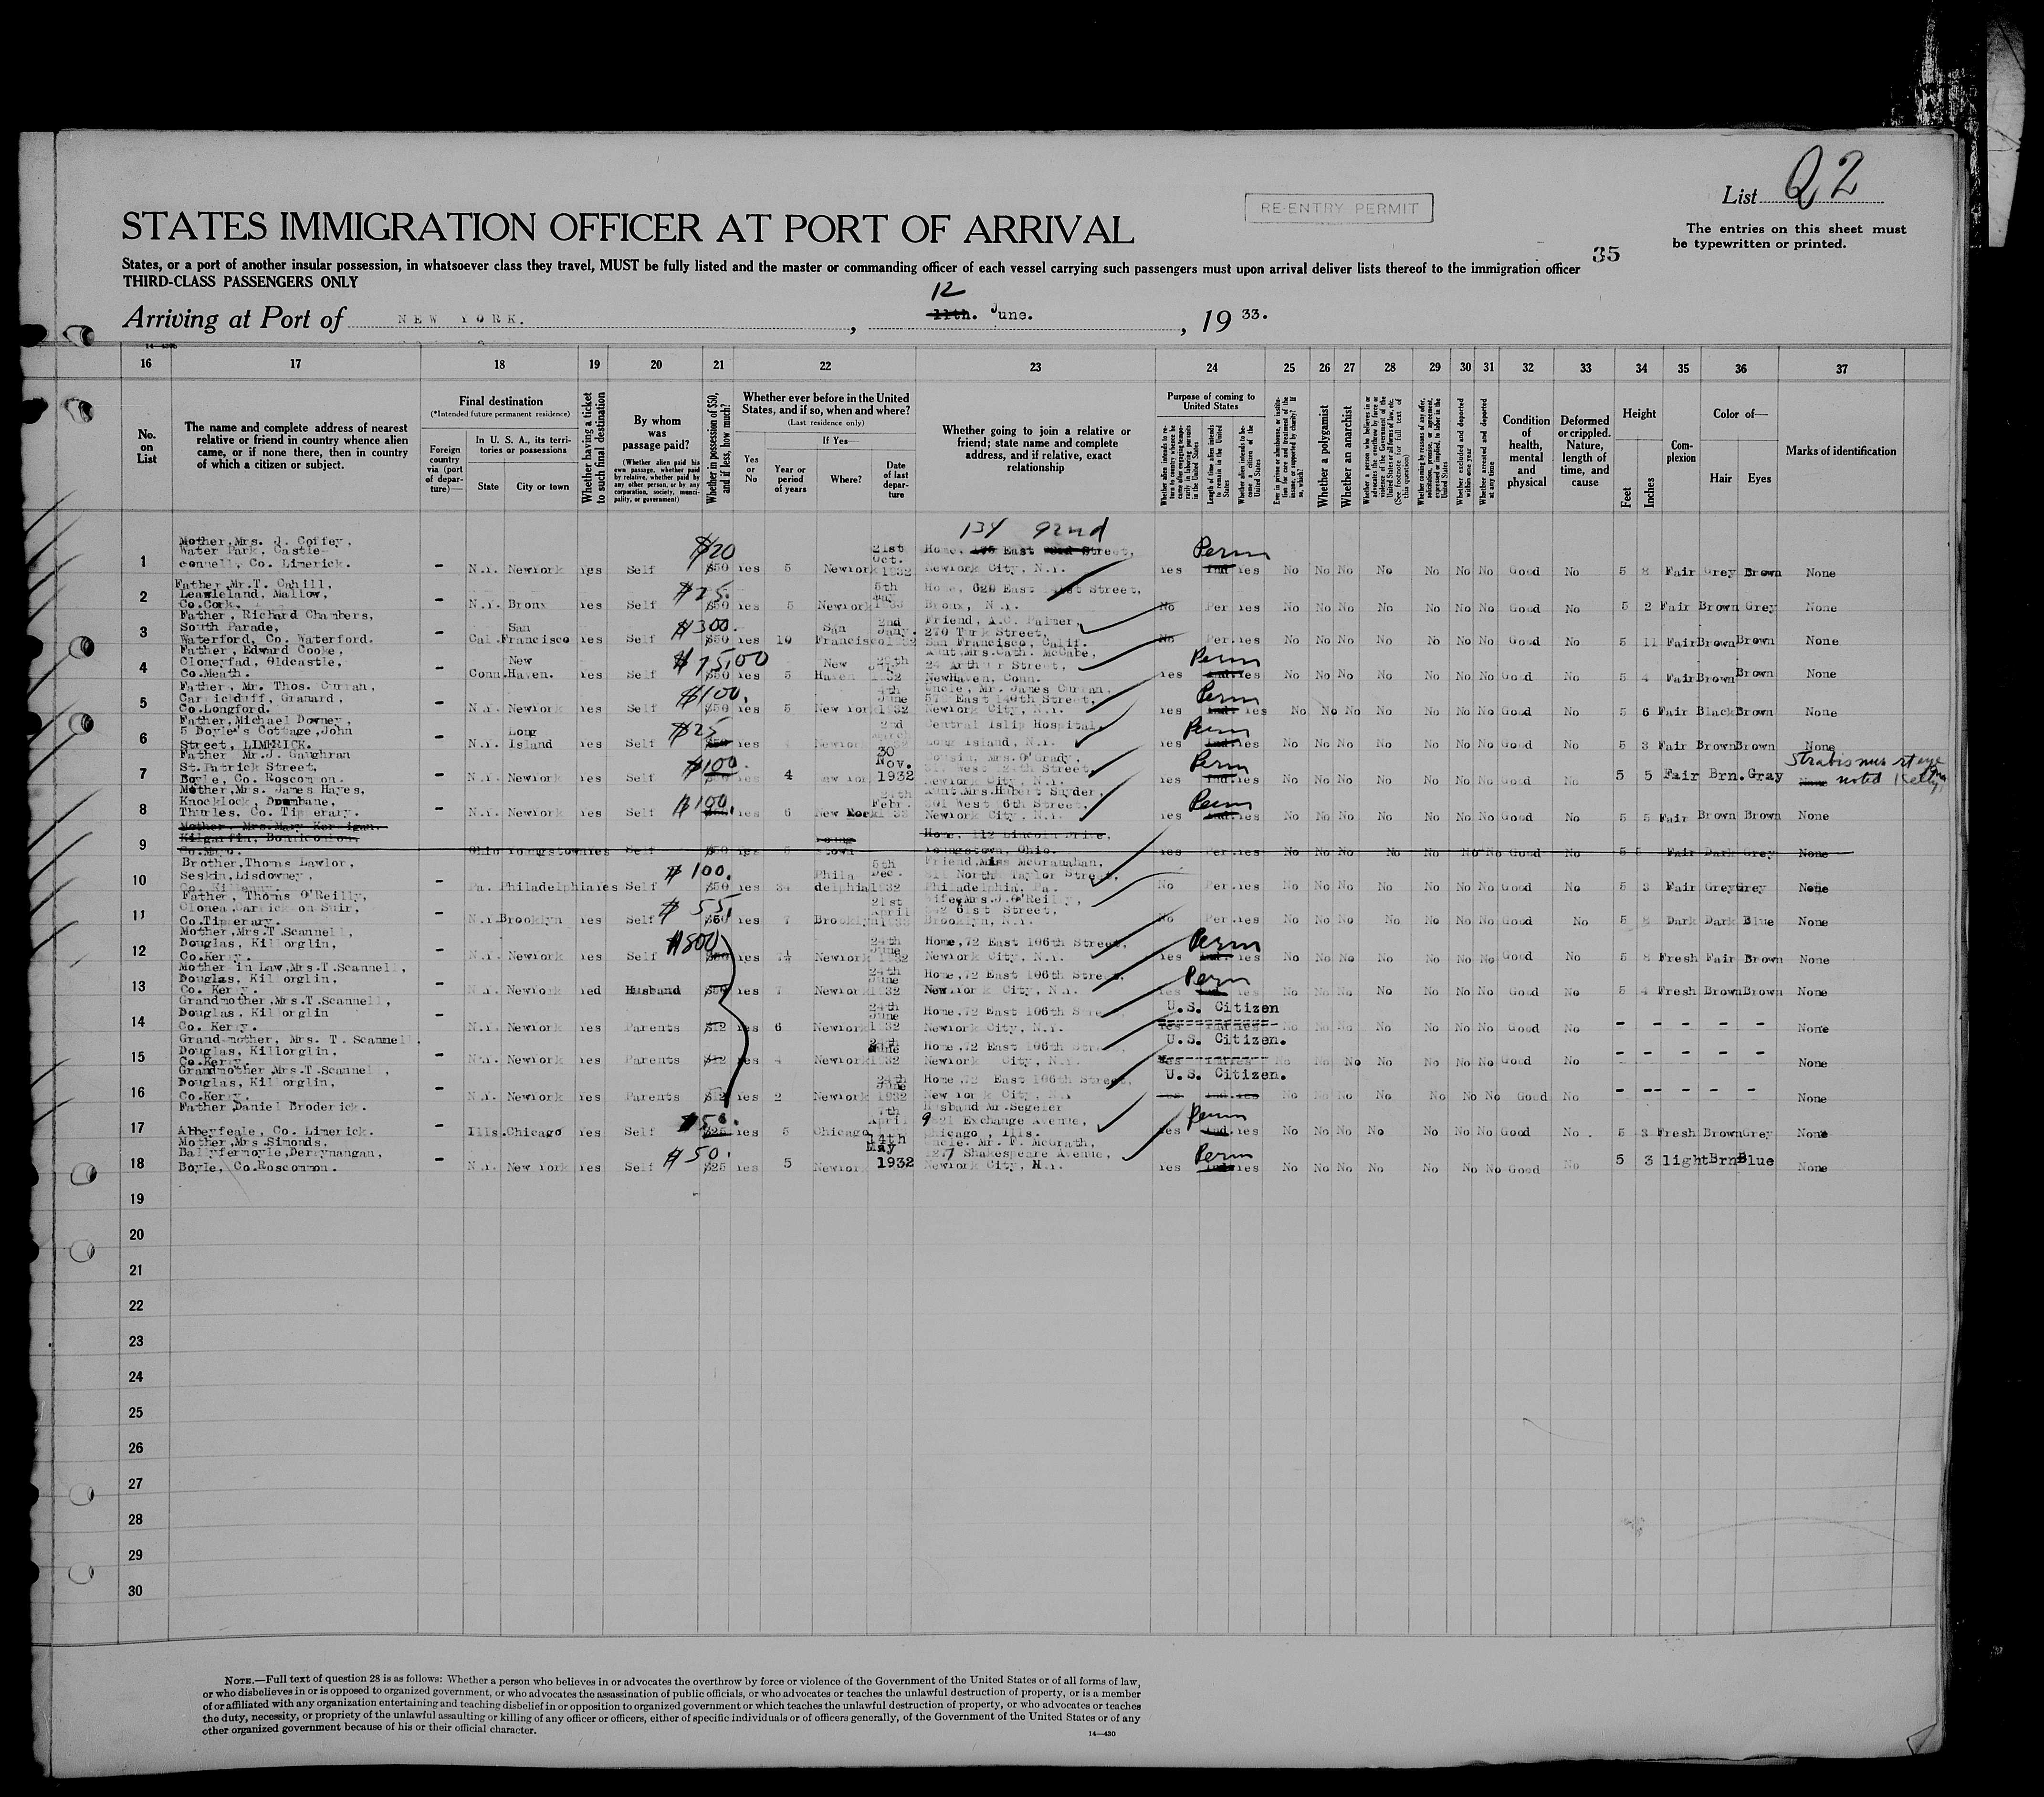 List Q2
RE-ENTRY PERMIT
STATES IMMIGRATION OFFICER AT PORT OF ARRIVAL
The entries on this sheet must
be typewritten or printed.
35
States, or a port of another insular possession, in whatsoever class they travel, MUST be fully listed and the master or commanding officer of each vessel carrying such passengers must upon arrival deliver lists thereof to the immigration officer
THIRD-CLASS PASSENGERS ONLY
12
Arriving at Port of NEW YORK. , 11th. June. , 19 33.
16 17 18 19 20 21 22 23 24 25 26 27 28 29 30 31 32 33 34 35 36 37
No. on List
The name and complete address of nearest
relative or friend in country whence alien
came, or if none there, then in country
of which a citizen or subject.
Final destination
(*Intended future permanent residence)
Foreign country via (port of departure)—
In U. S. A., its territories or possessions
State
City or town
Whether having a ticket to such final destination
By whom was passage paid?
(Whether alien paid his own passage, whether paid by relative, whether paid by any other person, or by any corporation, society, municipality, or government)
Whether in possession of $50, and if less, how much?
Whether ever before in the United
States, and if so, when and where?
(Last residence only)
Yes or No
If Yes—
Year or period of years
Where?
Date of last departure
Whether going to join a relative or
friend; state name and complete
address, and if relative, exact
relationship
Purpose of coming to United States
Whether alien intends to return to country whence he came after engaging temporarily in laboring pursuits in the United States
Length of time alien intends to remain in the United States
Whether alien intends to become a citizen of the United States
Ever in prison or almshouse, or institution for care and treatment of the insane, or supported by charity? If so, which?
Whether a polygamist
Whether an anarchist
Whether a person who believes in or advocates the overthrow by force or violence of the Government of the United States or all forms of law, etc. (See footnote for full text of this question)
Whether coming by reasons of any offer, solicitation, promise, or agreement, expressed or implied, to labor in the United States
Whether excluded and deported within one year
Whether arrested and deported at any time
Condition of health, mental and physical
Deformed or crippled. Nature, length of time, and cause
Height
Feet
Inches
Complexion
Color of—
Hair
Eyes
Marks of identification
134 92nd
1 Mother, Mrs. J. Coffey, Water Park, Castleconnell, Co. Limerick. - N.Y. NewYork Yes Self $20 $50 Yes 5 NewYork 21st Oct. 1932 Home, East Street, NewYork City, N.Y. Yes Perm Ind Yes No No No No No No No Good No 5 Fair Grey Brown None
2 Father, Mr. T. Cahill, Mallow, Co. Cork. - N.Y. Bronx Yes Self $50 Yes 5 NewYork 5th Home, 620 East Street, Bronx, N.Y. No Per Yes No No No No No No No Good No 5 2 Fair Brown Grey None
3 Father, Richard Chambers, South Parade, Waterford, Co. Waterford. - Cal. San Francisco Yes Self $300. $50 Yes 10 San Francisco 2nd Jany. 1932 Friend, A.C. Palmer, 270 Turk Street, San Francisco, Calif. No Per. Yes No No No No No No No Good No 5 11 Fair Brown Brown None
4 Father, Edward Cooke, Cloneyfad, Oldcastle, Co. Meath. - Conn. New Haven. Yes Self $75.00 $50 Yes 5 New Haven 1932 Aunt, Mrs. Cath. McCabe, 24 Arthur Street, NewHaven, Conn. Yes Perm Ind. Yes No No No No No No No Good No 5 4 Fair Brown Brown None
5 Father, Mr. Thos. Curran, Carrickduff, Granard, Co. Longford. - N.Y. NewYork Yes Self $100. $50 Yes 5 New York 4th June 1932 Uncle, Mr. James Curran, East 140th Street, NewYork City, N.Y. Yes Perm Ind. Yes No No No No No No No Good No 5 6 Fair Black Brown None
6 Father, Michael Downey, 5 Doyle's Cottage, John Street, LIMERICK. - N.Y. Long Island Yes Self $25 $50 Yes NewYork 2nd March Central Islip Hospital, Long Island, N.Y. Yes Perm Ind. Yes No No No No No No No Good No 5 3 Fair Brown Brown None
7 Father Mr. J. Gaughran St. Patrick Street, Boyle, Co. Roscommon. - N.Y. NewYork Yes Self $100 Yes 4 New York 30 Nov. 1932 Cousin, Mrs. O'Grady, West 124th Street, NewYork City, N.Y. Yes Perm Ind. Yes No No No No No No No Good No 5 5 Fair Brn. Gray Strabismus rt eye None noted
8 Mother, Mrs. James Hayes, Knocklock, Drombane, Thurles, Co. Tipperary. - N.Y. NewYork Yes Self $100. Yes 6 New York Febr. 1933 Aunt, Mrs. Hubert Snyder, 601 West Street, NewYork City, N.Y. Yes Perm Ind. Yes No No No No No No No Good No 5 5 Fair Brown Brown None
9 Mother, Mrs. Mary Kerrigan, Kilgarfin, Bonniconlon, Co. Mayo. - Ohio Youngstown Yes Self $50 Yes 5 Youngstown Home, 112 Lincoln Drive, Youngstown, Ohio. Yes Per. Yes No No No No No No No Good No 5 5 Fair Dark Grey None
10 Brother, Thomas Lawlor, Seskin, Lisdowney, Co. Kilkenny. - Pa. Philadelphia Yes Self $100. $50 Yes Philadelphia 5th Dec. 1932 Friend, Miss McGranahan, North Taylor Street, Philadelphia, Pa. No Per. Yes No No No No No No No Good No 5 3 Fair Grey Grey None
11 Father, Thomas O'Reilly, Clonea, Carrick on Suir, Co. Tipperary. - N.Y. Brooklyn Yes Self $55. $50 Yes 7 Brooklyn 21st April 1933 Wife, Mrs. J. O'Reilly, 61st Street, Brooklyn, N.Y. No Per. Yes No No No No No No No Good No 5 8 Dark Dark Blue None
12 Mother, Mrs. T. Scannell, Douglas, Killorglin, Co. Kerry. - N.Y. NewYork Yes Self $800 $50 Yes 7½ NewYork 24th June 1932 Home, 72 East 106th Street, NewYork City, N.Y. Yes Perm Ind. Yes No No No No No No No Good No 5 8 Fresh Fair Brown None
13 Mother in Law, Mrs. T. Scannell, Douglas, Killorglin, Co. Kerry. - N.Y. NewYork Yes Husband $50 Yes 7 NewYork 24th June 1932 Home, 72 East 106th Street, NewYork City, N.Y. Yes Perm Ind. Yes No No No No No No No Good No 5 4 Fresh Brown Brown None
14 Grandmother, Mrs. T. Scannell, Douglas, Killorglin Co. Kerry. - N.Y. NewYork Yes Parents $12 Yes 6 NewYork 24th June 1932 Home, 72 East 106th Street, NewYork City, N.Y. U.S. Citizen Yes Ind. Yes No No No No No No No Good No - - - - - None
15 Grand-mother, Mrs. T. Scannell, Douglas, Killorglin, Co. Kerry. - N.Y. NewYork Yes Parents $12 Yes 4 NewYork 24th June 1932 Home, 72 East 106th Street, NewYork City, N.Y. U.S. Citizen. Yes Ind. Yes No No No No No No No Good No - - - - - None
16 Grandmother, Mrs. T. Scannell, Douglas, Killorglin, Co. Kerry. - N.Y. NewYork Yes Parents $12 Yes 2 NewYork 24th June 1932 Home, 72 East 106th Street, New York City, N.Y. U.S. Citizen. Yes Ind. Yes No No No No No No No Good No - -- - - - None
17 Father, Daniel Broderick. Abbeyfeale, Co. Limerick. - Ills. Chicago Yes Self $50. $25 Yes 5 Chicago 7th April Husband Mr. Segeler Exchange Avenue, Chicago, Ills. Yes Perm Ind. Yes No No No No No No No Good No. 5 3 Fresh Brown Grey None
18 Mother, Mrs. Simonds, Ballyfermoyle, Derrynangan, Boyle, Co. Roscommon. - N.Y. New York Yes Self $50. $25 Yes 5 NewYork 14th May 1932 Uncle. Mr. F. McGrath, Shakespeare Avenue, NewYork City, N.Y. Yes Perm Ind. Yes No No No No No No No Good No 5 3 light Brn Blue None
19
20
21
22
23
24
25
26
27
28
29
30
NOTE.—Full text of question 28 is as follows: Whether a person who believes in or advocates the overthrow by force or violence of the Government of the United States or of all forms of law,
or who disbelieves in or is opposed to organized government, or who advocates the assassination of public officials, or who advocates or teaches the unlawful destruction of property, or is a member
of or affiliated with any organization entertaining and teaching disbelief in or opposition to organized government or which teaches the unlawful destruction of property, or who advocates or teaches
the duty, necessity, or propriety of the unlawful assaulting or killing of any officer or officers, either of specific individuals or of officers generally, of the Government of the United States or of any
other organized government because of his or their official character.
14—430